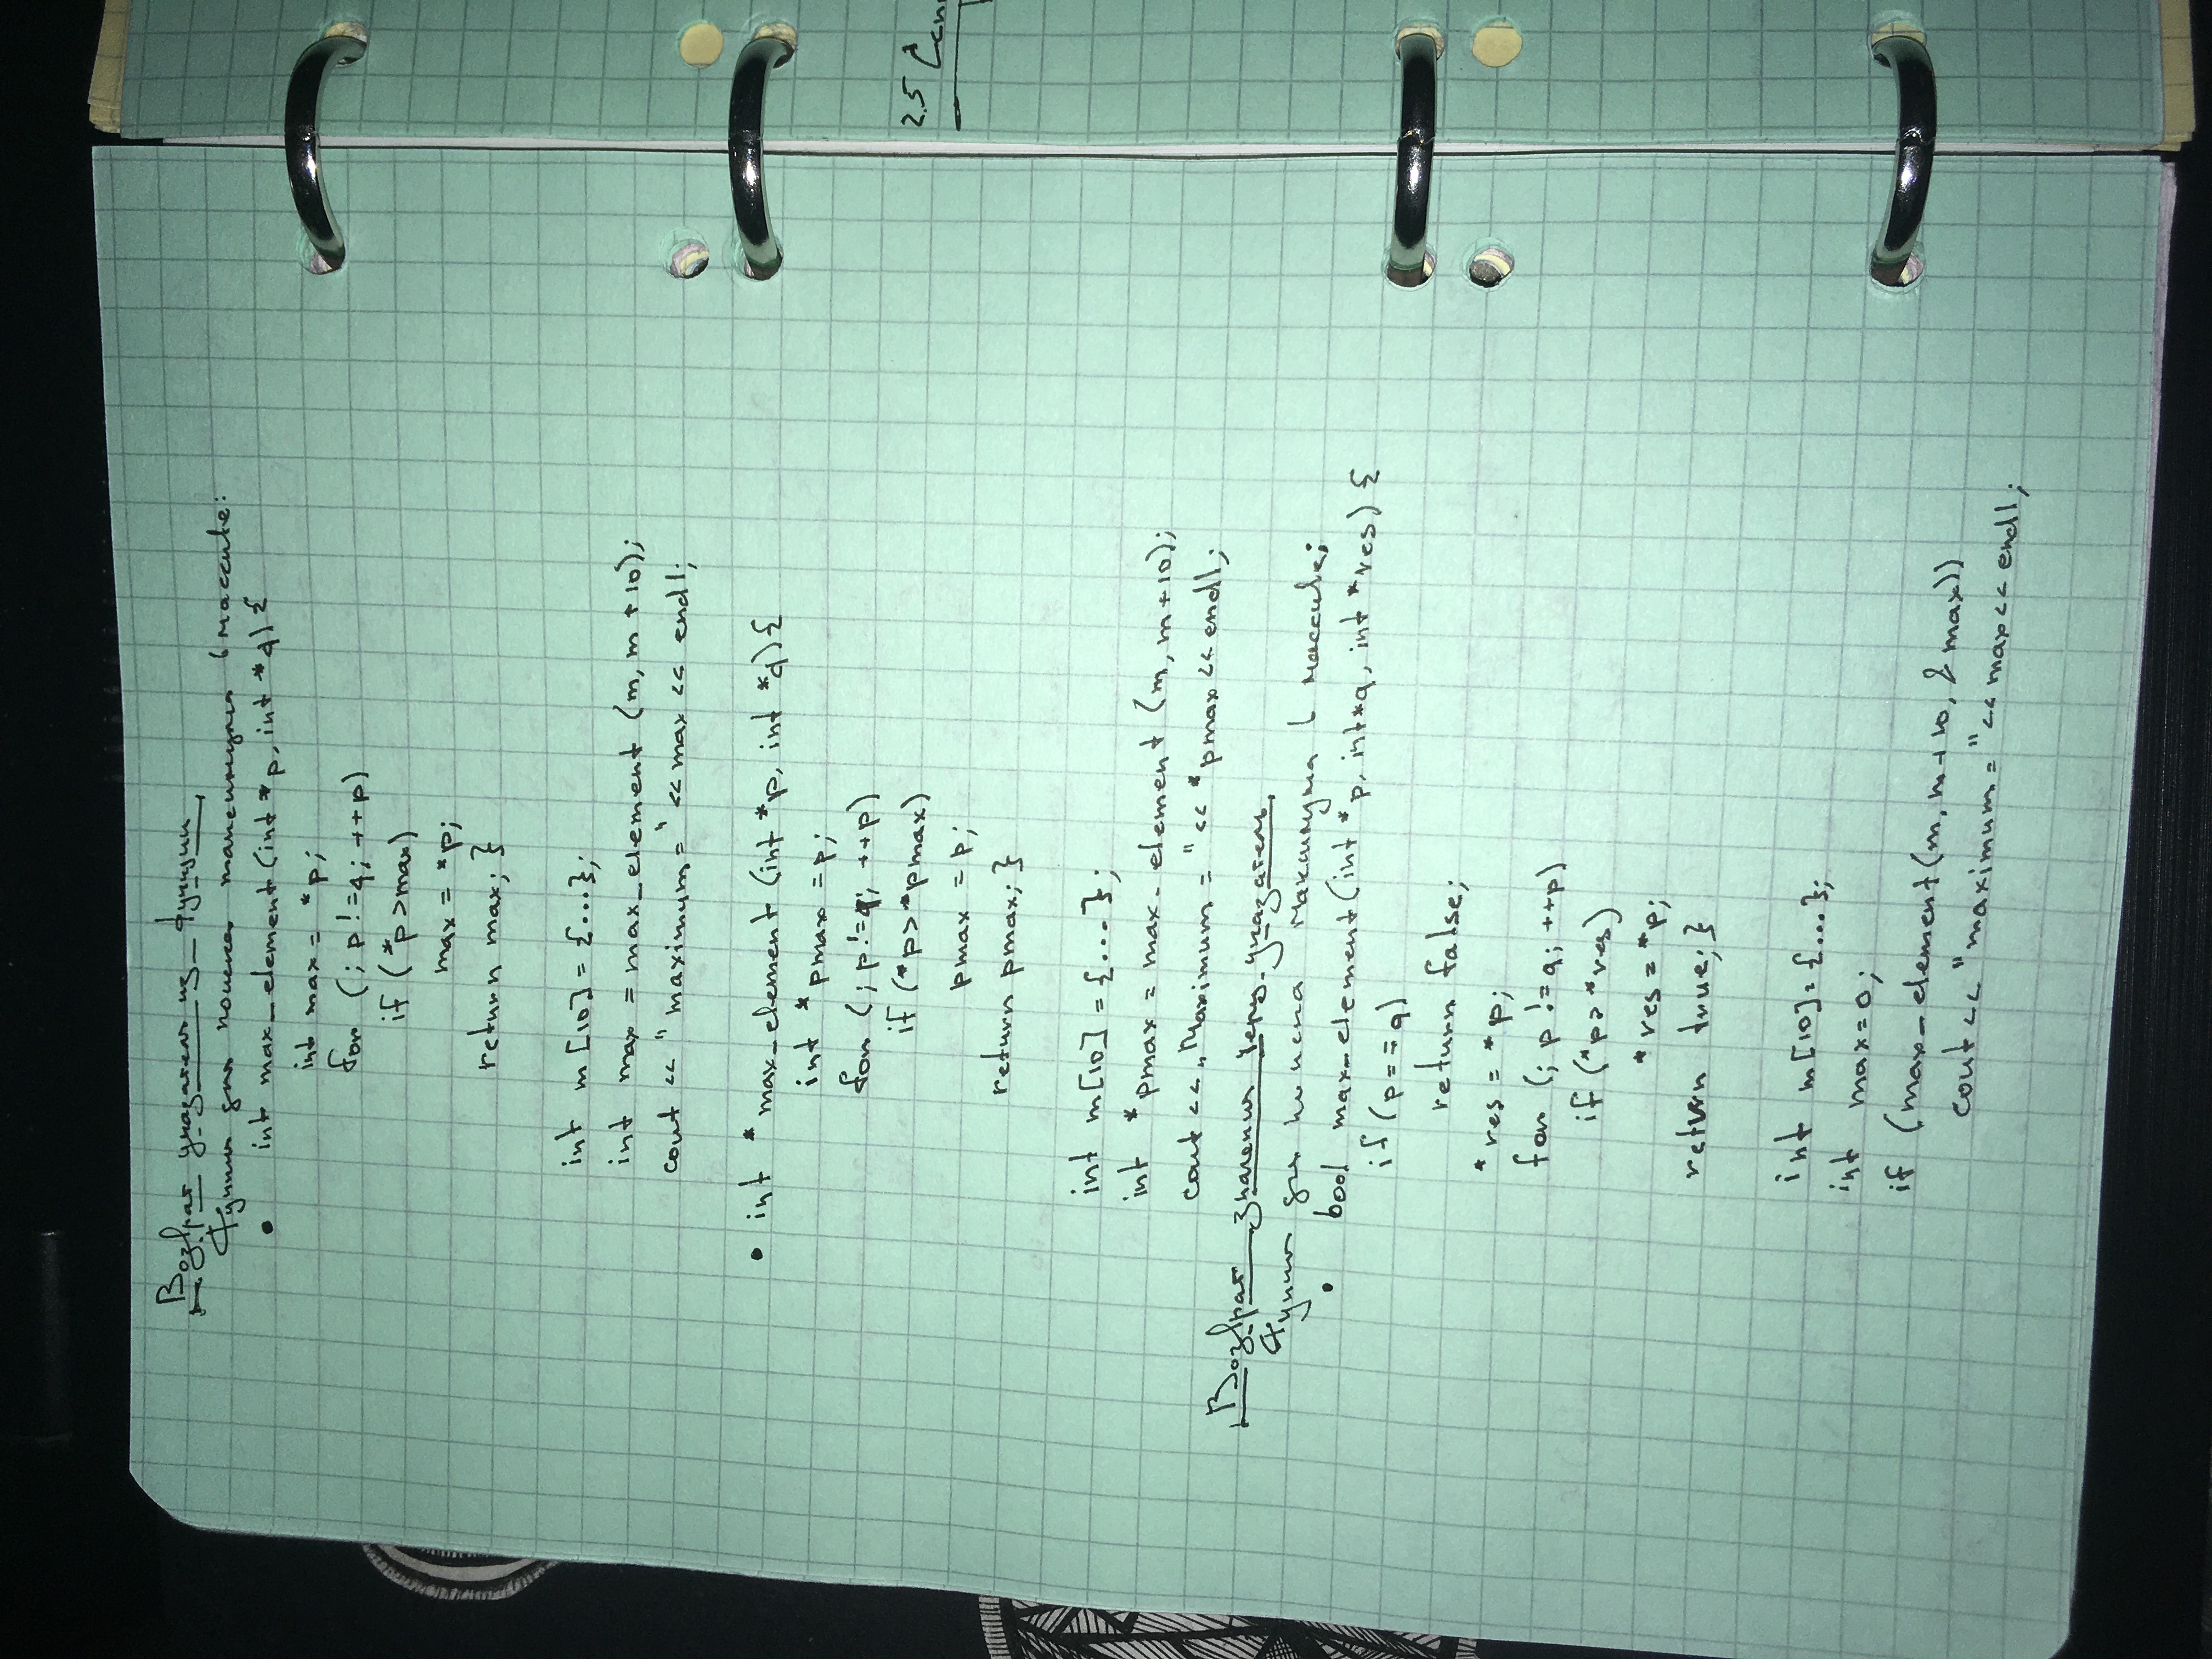 Возврат указателя из функции
Функция для поиска максимума в массиве:
• int max_element (int *p, int *q) {
int max = *p;
for (; p != q; ++p)
if (*p > max)
max = *p;
return max; }
int m [10] = {...};
int max = max_element (m, m + 10);
cout << "maximum = " << max << endl;
• int *max_element (int *p, int *q) {
int *pmax = p;
for (; p != q; ++p)
if (*p > *pmax)
pmax = p;
return pmax; }
int m[10] = {...};
int *pmax = max_element (m, m+10);
cout << „Maximum = " << *pmax << endl;
Возврат значения через указатель
Функция для поиска максимума в массиве:
• bool max_element (int *p, int *q, int *res) {
if (p == q)
return false;
*res = *p;
for (; p != q; ++p)
if (*p > *res)
*res = *p;
return true; }
int m[10] = {...};
int max = 0;
if (max_element(m, m + 10, &max))
cout << "maximum = " << max << endl;
2.5